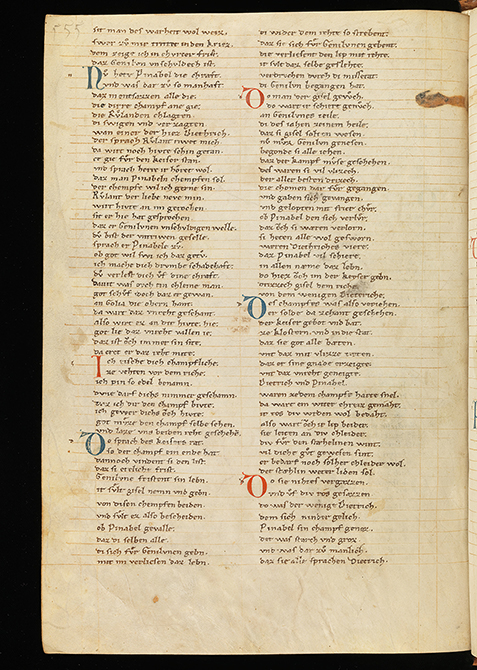 555
sit man des warheit wol weiz.
swer zv mir trittet in den kreiz.
dem zeige ich in chvrcer frist.
daz Genilvn vnschvldech ist.
Nv hort Pinabel die chraft.
vnd was dar zv so manhaft.
daz in entsazzen alle die.
die dirre champf ane gie.
die Rvlanden chlageten.
di swigen vnd verzageten.
wan einer der hiez Diethrich.
der sprach Rvlant riwet mich.
da wirt noch hivte schin getan.
er gie fvr den keiser stan.
vnd sprach herre ir horet wol.
daz man Pinabeln chempfen sol.
der chempfe wil ich gerne sin.
Rvlant der liebe neve min.
wirt hivte an im gerochen.
sit er hie hat gesprochen.
daz er Genilvnen vnschvldigen welle.
dv bist der vntriwen geselle.
sprach er Pinabele zv.
ob got wil swi ich daz getv.
ich mache dich drvmbe schadehaft.
dv verlest dich vf dine chraft.
Davit was ovch ein chleine man.
got schvf doch daz er gewan.
an Golia die oberen hant.
da wart daz vnreht geschant.
also wirt ez an dir hivte hie.
got lie daz vnreht vallen ie.
daz ist ovch immer sin site.
da eret er daz reht mite.
Ich erlede dich champfliche.
ze rehten vor dem riche.
ich pin so edel benamn.
dvne darf dichs nimmer geschamn.
trar ich dir den champf hivte.
ich gewer dichs ovch hivte.
got mvze den champf selbe sehen.
vnd laze vns beiden reht geschehen.
Do sprach des keisers rat.
so der champf ein ende hat.
dannoch vindent si den list.
daz si etliche frist.
Genilvne fristent sin lebn.
ir svlt gisel nemn vnd gebn.
von disen chempfen beiden.
vnd svlt ez also bescheiden.
ob Pinabel gevalle.
daz di selben alle.
di sich fvr Genilvnen gebn.
mit im verliesen daz lebn.
di wider dem rehte so strebent.
daz si sich fvr Genilvnen gebent.
die verliesent den lip mit rehte.
ir svlt daz selbe geslehte.
verdruchen dvrch di missetat.
di Genilvn begangen hat.
Do man der gisel gewch.
do wart ir schiere genvch.
an Genilvnes teile.
di des iahen zeinem heile.
daz si gisel solten wesen.
nv mvz Genilvn genesen.
begonde si alle iehen.
daz der kampf mvse geschehen.
des waren si vil vlizech.
der aller besten drizech.
die chomen dar fvr gegangen.
vnd gaben sich gevangen.
vnd gelopten mit freier chvr.
ob Pinabel den sich verlvr.
daz och si waren verlorn.
si heten alle wol gesworn.
weren Diethriches viere.
daz Pinabel vil schiere.
in allen neme daz lebn.
do hiez ovch im der keiser gebn.
drizzech gisel dem riche.
von dem wenigen Dietriche.
Des champfes was also veriehen.
er solde da zehant geschehen.
der keiser gebot vnd bat.
ze klostern vnd in die stat.
daz sie got alle bæten.
vnt daz mit vlizze tæten.
daz er sine gnade erzeigete.
vnt daz vnreht geneigete.
Dietrich vnd Pinabel.
waren zedem champfe harte snel.
da wart ein witer chreiz gemaht.
ir ros div wrden wol bedaht.
also wart ovch ir lip beider.
sie leiten an div chleider.
div fvr den stæhelinen wint.
vil dicke gvt gewesen sint.
er bedarf noch solher chleider wol.
der stæhlin weter liden sol.
Do sie nihtes vergazzen.
vnd vf div ros gesazzen.
do was der wenige Dietrich.
dem sich nindir gelich.
Pinabel sin champf genoz.
der was starch vnd groz.
vnd was dar zv manlich.
daz sie alle sprachen Dietrich.